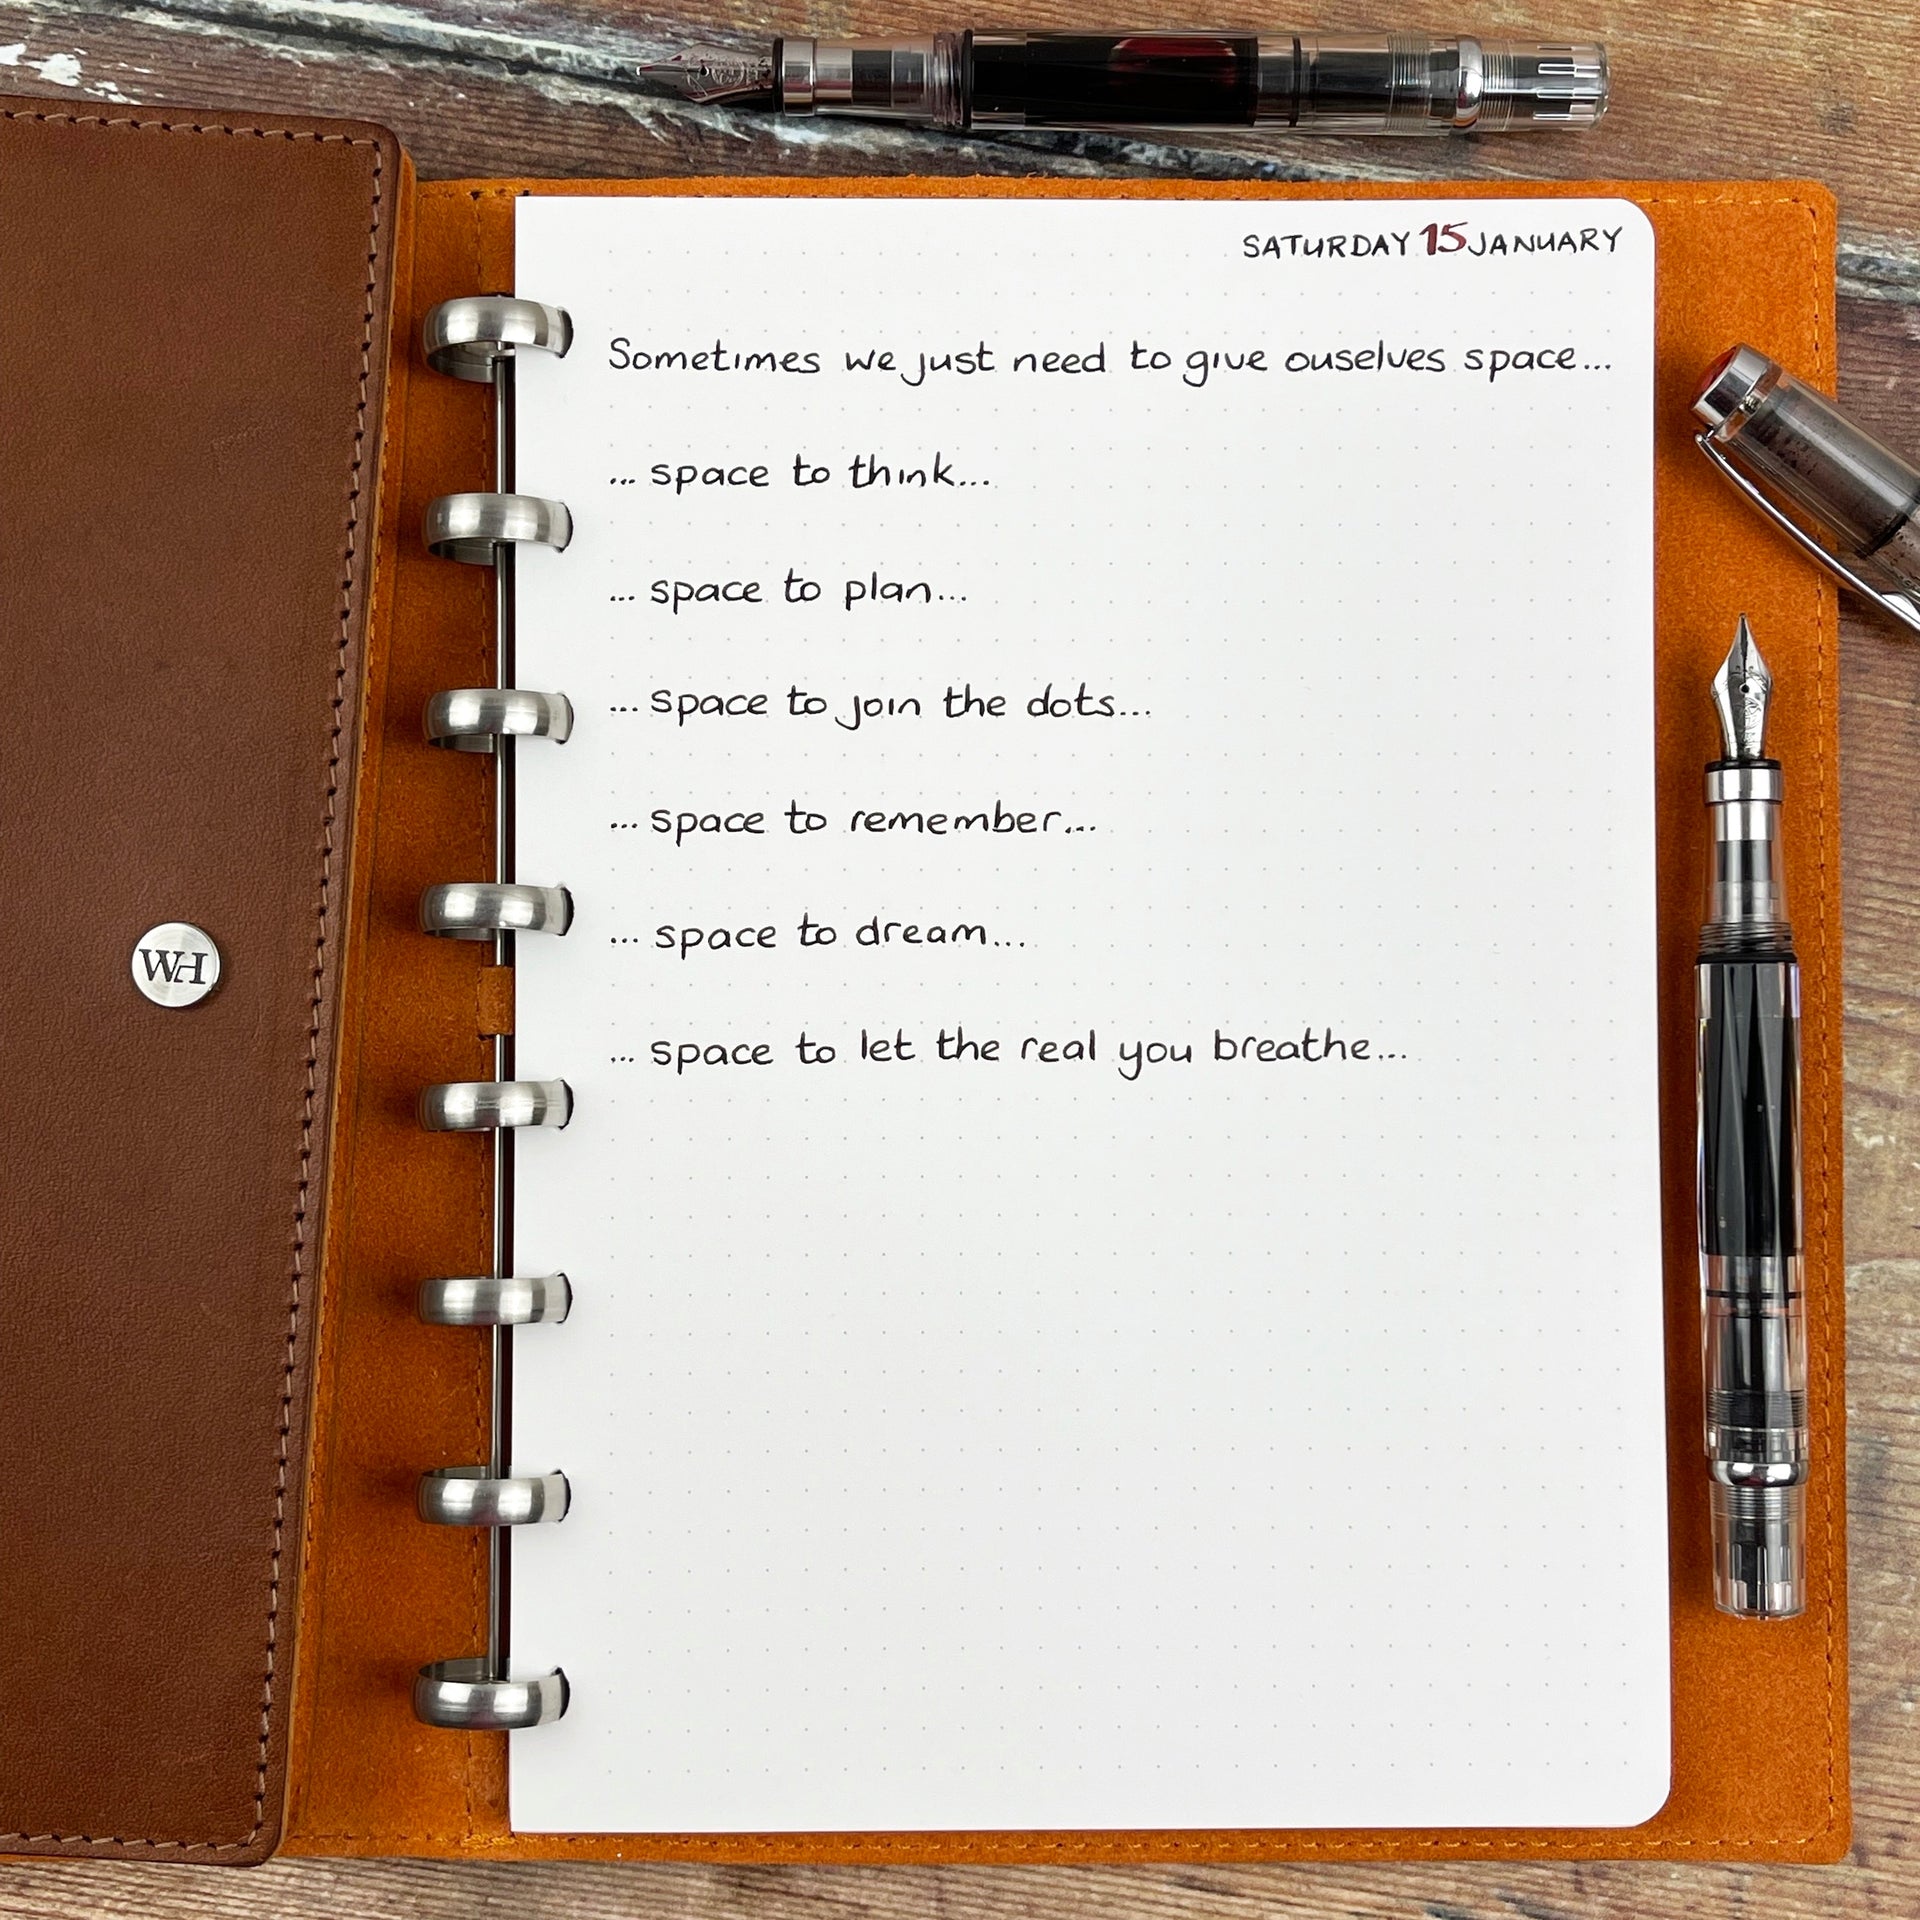 SATURDAY 15 JANUARY
Sometimes we just need to give ouselves space...
... space to think...
... space to plan...
... space to join the dots...
... space to remember...
... space to dream...
... space to let the real you breathe...
WH